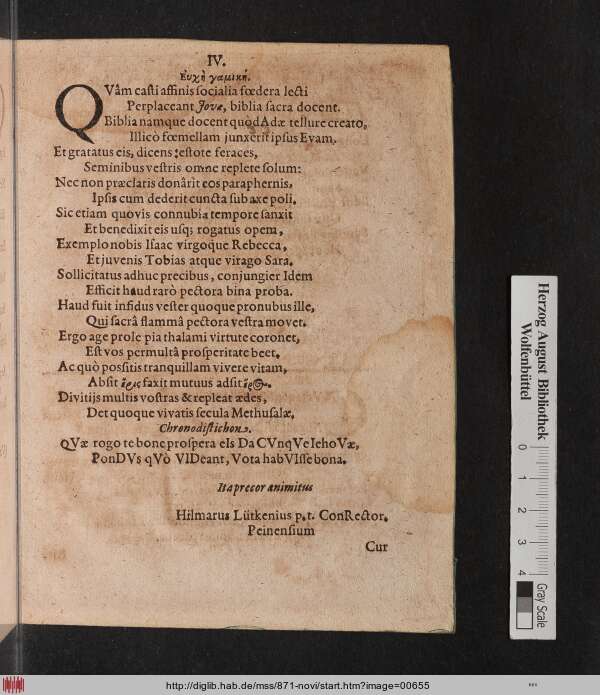 IV.
Ἐυχὴ γαμική.
QVâm casti affinis socialia fœdera lecti
Perplaceant Jovæ, biblia sacra docent.
Biblia namque docent quòd Adæ tellure creato,
Illicò fœmellam junxerit ipsus Evam.
Et gratatus eis, dicens: estote feraces,
Seminibus vestris omne replete solum:
Nec non præclaris donârit eos paraphernis,
Ipsis cum dederit cuncta sub axe poli.
Sic etiam quovis connubia tempore sanxit
Et benedixit eis usq; rogatus opem,
Exemplo nobis Isaac virgoque Rebecca,
Et juvenis Tobias atque virago Sara.
Sollicitatus adhuc precibus, conjungier Idem
Efficit haud rarò pectora bina proba.
Haud fuit infidus vester quoque pronubus ille,
Qui sacrâ flammâ pectora vestra movet.
Ergo age prole pia thalami virtute coronet,
Est vos permultâ prosperitate beet.
Ac quò possitis tranquillam vivere vitam,
Absit ἔρις faxit mutuus adsit ἔρως.
Divitijs multis vostras & repleat ædes,
Det quoque vivatis secula Methusalæ.
Chronodistichon.
QVæ rogo te bone prospera eIs Da CVnqVe IehoVæ,
PonDVs qVò VIDeant, Vota habVIsse bona.
Ita precor animitus
Hilmarus Lütkenius p. t. ConRector.
Peinensium
Cur
Herzog August Bibliothek
Wolfenbüttel
0
1
2
3
4
Gray Scale
http://diglib.hab.de/mss/871-novi/start.htm?image=00655